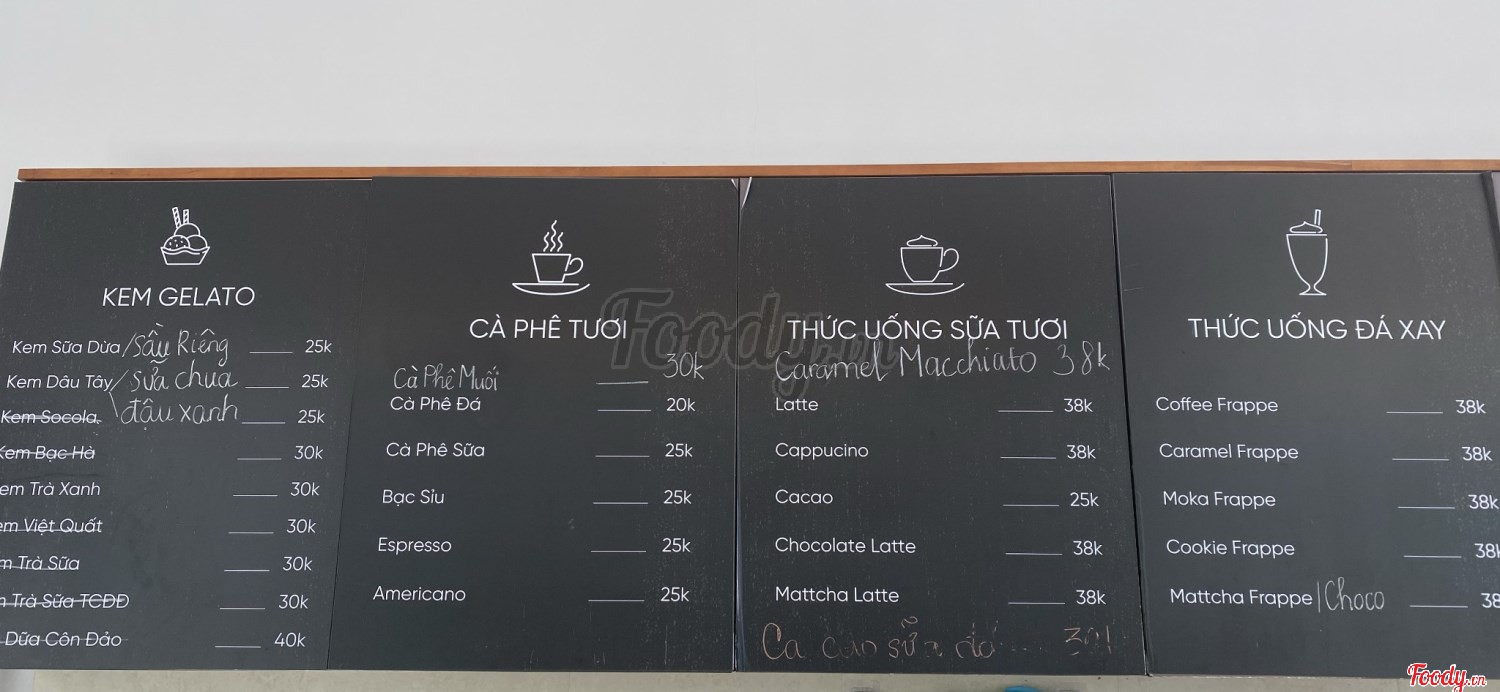 KEM GELATO
Kem Sữa Dừa/Sầu Riêng ____ 25k
Kem Dâu Tây/ sữa chua ____ 25k
Kem Socola \đậu xanh ____ 25k
Kem Bạc Hà ____ 30k
em Trà Xanh ____ 30k
em Việt Quất ____ 30k
m Trà Sữa ____ 30k
n Trà Sữa TCĐĐ ____ 30k
Dừa Côn Đảo ____ 40k
CÀ PHÊ TƯƠI
Cà Phê Muối ____ 30k
Cà Phê Đá ____ 20k
Cà Phê Sữa ____ 25k
Bạc Sỉu ____ 25k
Espresso ____ 25k
Americano ____ 25k
THỨC UỐNG SỮA TƯƠI
Caramel Macchiato 38k
Latte ____ 38k
Cappucino ____ 38k
Cacao ____ 25k
Chocolate Latte ____ 38k
Mattcha Latte ____ 38k
Ca cao sữa đá
THỨC UỐNG ĐÁ XAY
Coffee Frappe ____ 38k
Caramel Frappe ____ 38k
Moka Frappe ____ 38k
Cookie Frappe ____ 38k
Mattcha Frappe/Choco ____ 38
Foody.vn
Foody.vn